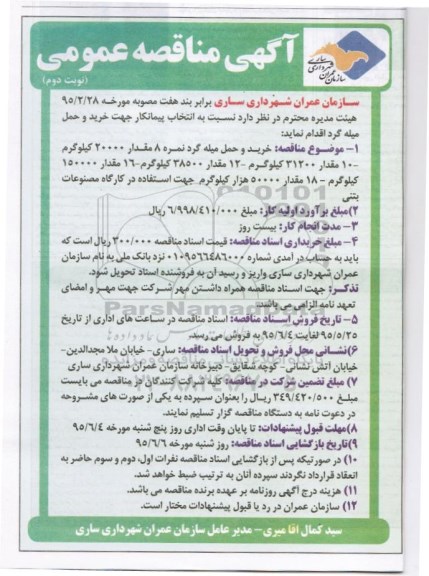 آگهی مناقصه عمومی
(نوبت دوم)
سازمان عمران شهرداری ساری
سازمان عمران شهرداری ساری برابر بند هفت مصوبه مورخه ۹۵/۲/۲۸
هیئت مدیره محترم در نظر دارد نسبت به انتخاب پیمانکار جهت خرید و حمل
میله گرد اقدام نماید:
۱- موضوع مناقصه: خرید و حمل میله گرد نمره ۸ مقدار ۲۰۰۰۰ کیلوگرم
-۱۰ مقدار ۳۱۲۰۰ کیلوگرم -۱۲ مقدار ۳۸۵۰۰ کیلوگرم-۱۶ مقدار ۱۵۰۰۰۰
کیلوگرم - ۱۸ مقدار ۵۰۰۰۰ هزار کیلوگرم جهت استفاده در کارگاه مصنوعات
بتنی
۲)مبلغ برآورد اولیه کار: مبلغ ۶/۹۹۸/۴۱۰/۰۰۰ ریال
۳- مدت انجام کار: بیست روز
۴- مبلغ خریداری اسناد مناقصه: قیمت اسناد مناقصه ۳۰۰/۰۰۰ ریال است که
باید به حساب در آمدی شماره ۰۱۰۹۵۶۶۴۸۶۰۰۰ نزد بانک ملی به نام سازمان
عمران شهرداری ساری واریز و رسید آن به فروشنده اسناد تحویل شود.
تذکر: جهت اسناد مناقصه همراه داشتن مهر شرکت جهت مهر و امضای
تعهد نامه الزامی می باشد.
۵- تاریخ فروش اسناد مناقصه: اسناد مناقصه در ساعت های اداری از تاریخ
۹۵/۵/۲۵ لغایت ۹۵/۶/۴ به فروش می رسد.
۶)نشانی محل فروش و تحویل اسناد مناقصه: ساری- خیابان ملا مجدالدین-
خیابان آتش نشانی - کوچه شقایق- دبیرخانه سازمان عمران شهرداری ساری
۷) مبلغ تضمین شرکت در مناقصه: کلیه شرکت کنندگان در مناقصه می بایست
مبلغ ۳۴۹/۴۲۰/۵۰۰ ریال را بعنوان سپرده به یکی از صورت های مشروحه
در دعوت نامه به دستگاه مناقصه گزار تسلیم نمایند.
۸)مهلت قبول پیشنهادات: تا پایان وقت اداری روز پنج شنبه مورخه ۹۵/۶/۴
۹)تاریخ بازگشایی اسناد مناقصه: روز شنبه مورخه ۹۵/۶/۶
۱۰) در صورتیکه پس از بازگشایی اسناد مناقصه نفرات اول، دوم و سوم حاضر به
انعقاد قرارداد نگردند سپرده آنان به ترتیب ضبط خواهد شد.
۱۱) هزینه درج آگهی روزنامه بر عهده برنده مناقصه می باشد.
۱۲) سازمان عمران در رد یا قبول پیشنهادات مختار است.
سید کمال آقا میری- مدیر عامل سازمان عمران شهرداری ساری